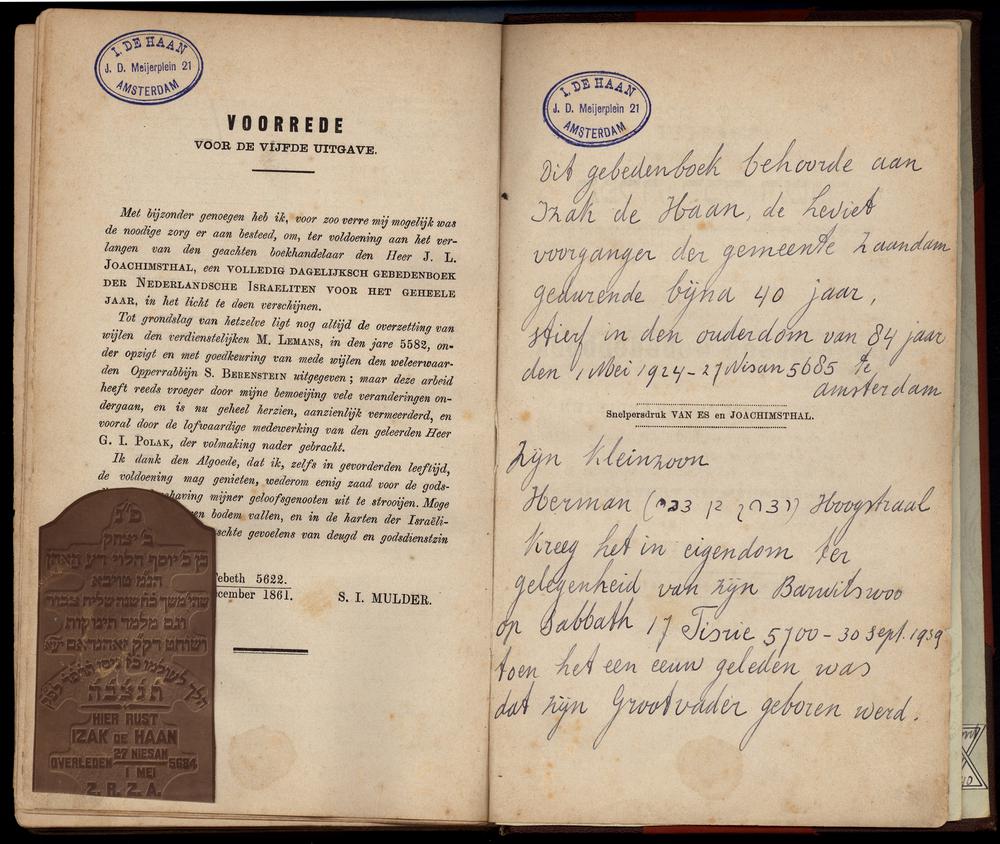 I. DE HAAN
J. D. Meijerplein 21
AMSTERDAM
VOORREDE
VOOR DE VIJFDE UITGAVE.
Met bijzonder genoegen heb ik, voor zoo verre mij mogelijk was
de noodige zorg er aan besteed, om, ter voldoening aan het ver-
langen van den geachten boekhandelaar den Heer J. L.
JOACHIMSTHAL, een VOLLEDIG DAGELIJKSCH GEBEDENBOEK
DER NEDERLANDSCHE ISRAELITEN VOOR HET GEHEELE
JAAR, in het licht te doen verschijnen.
Tot grondslag van hetzelve ligt nog altijd de overzetting van
wijlen den verdienstelijken M. LEMANS, in den jare 5582, on-
der opzigt en met goedkeuring van mede wijlen den weleerwaar-
den Opperrabbijn S. BERENSTEIN uitgegeven; maar deze arbeid
heeft reeds vroeger door mijne bemoeijing vele veranderingen on-
dergaan, en is nu geheel herzien, aanzienlijk vermeerderd, en
vooral door de lofwaardige medewerking van den geleerden Heer
G. I. POLAK, der volmaking nader gebracht.
Ik dank den Algoede, dat ik, zelfs in gevorderden leeftijd,
de voldoening mag genieten, wederom eenig zaad voor de gods-
having mijner geloofsgenooten uit te strooijen. Moge
en bodem vallen, en in de harten der Israëli-
schte gevoelens van deugd en godsdienstzin
Tebeth 5622.
cember 1861. S. I. MULDER.
פ״נ
ר׳ יצחק
בן כ׳ יוסף הלוי דע האהן
הנ״מ טויבא
שהי׳ משך כ״ח שנה שליח צבור
וגם מלמד תינוקות
ושוחט דק״ק זאהנדאם יע״א
תנצבה
HIER RUST
IZAK DE HAAN
OVERLEDEN 27 NIESAN 5684
1 MEI
Z. R. Z. A.
I. DE HAAN
J. D. Meijerplein 21
AMSTERDAM
Dit gebedenboek behoorde aan
Izak de Haan, de Leviet
voorganger der gemeente Zaandam
gedurende bijna 40 jaar,
stierf in den ouderdom van 84 jaar
den 1 Mei 1924 - 27 Nisan 5685 te
Amsterdam
Snelpersdruk VAN ES en JOACHIMSTHAL.
Zijn Kleinzoon
Herman Hoogstraal
Kreeg het in eigendom ter
gelegenheid van zijn Barmitswoo
op Sabbath 17 Tisrie 5700 - 30 Sept. 1939
toen het een eeuw geleden was
dat zijn Grootvader geboren werd.